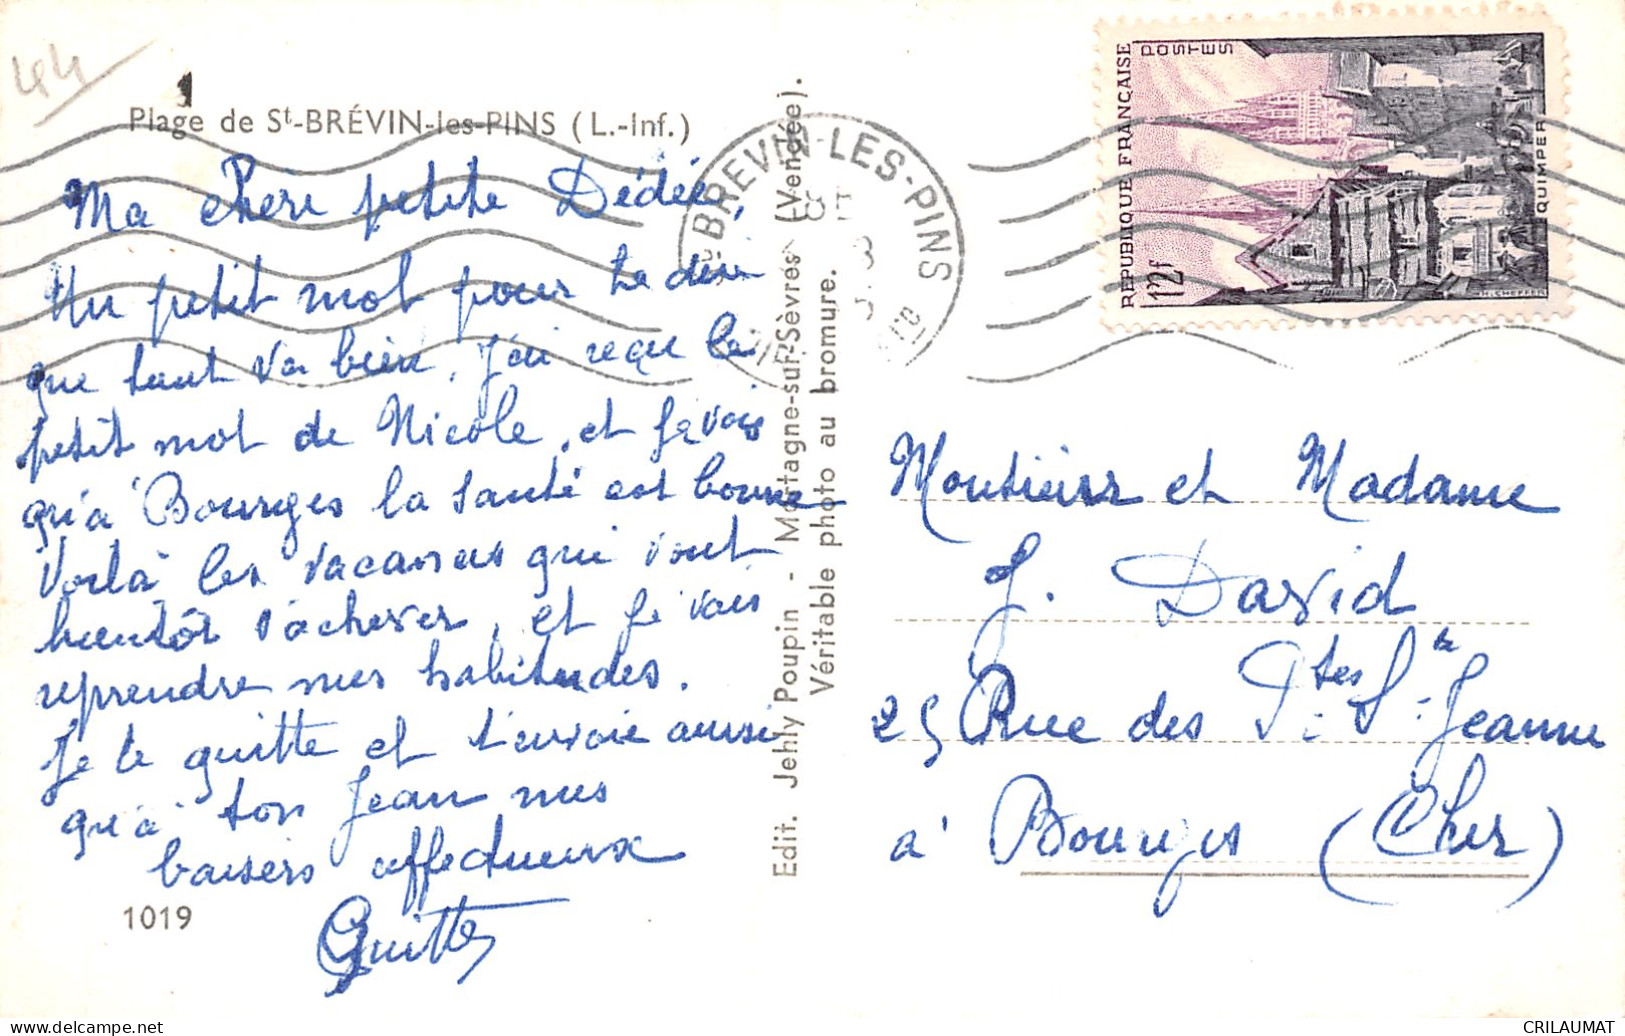 44
Plage de St-BRÉVIN-les-PINS (L.-Inf.)
Ma chère petite Dédée,
Un petit mot pour te dire
que tout va bien, j'ai reçu le
petit mot de Nicole, et je vois
qu'à Bourges la santé est bonne
Voilà les vacances qui vont
bientôt s'achever, et je vais
reprendre mes habitudes.
Je te quitte et t'envoie ainsi
qu'à ton Jean mes
baisers affectueux
Guitte
1019
Edit. Jehly Poupin - Mortagne-sur-Sèvres (Vendée).
Véritable photo au bromure.
BREVIN-LES-PINS
REPUBLIQUE FRANÇAISE
POSTES
12f
QUIMPER
H.CHEFFER
Monsieur et Madame
J. David
25 Rue des Ptes Ste Jeanne
à Bourges (Cher)
CRILAUMAT